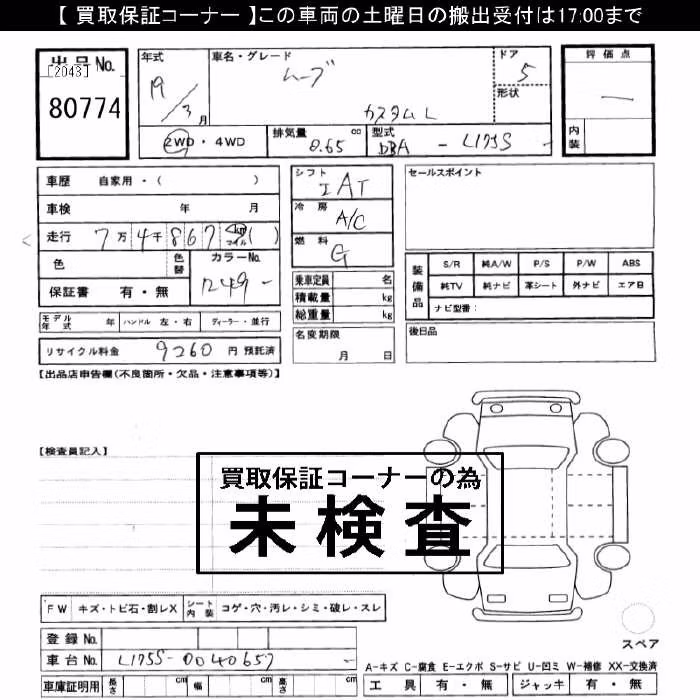 【 買取保証コーナー 】この車両の土曜日の搬出受付は17:00まで
出品No.
[2043]
80774
年式
19/3月
車名・グレード
ムーブ
カスタムL
ドア
5
形状
評価点
—
内装
2WD・4WD
排気量 0.65 cc
型式 DBA - L175S -
車歴 自家用・( )
車検 年 月
走行 7万4千867 km マイル ( )
色
色替
カラーNo.
保証書 有・無
モデル年式 年 ハンドル 左・右 ディーラー・並行
リサイクル料金 9260 円 預託済
シフト
IAT
冷房
A/C
燃料
G
乗車定員 名
積載量 kg
総重量 kg
名変期限
月 日
セールスポイント
装備品
S/R 純A/W P/S P/W ABS
純TV 純ナビ 革シート 外ナビ エアB
ナビ型番:
後日品
【出品店申告欄(不良箇所・欠品・注意事項等)】
【検査員記入】
買取保証コーナーの為
未検査
FW キズ・トビ石・割レX
シート内装 コゲ・穴・汚レ・シミ・破レ・スレ
登録No.
車台No. L175S-0040657 -
車庫証明用 長さ cm 幅 cm 高さ cm
スペア
A-キズ C-腐食 E-エクボ S-サビ U-凹ミ W-補修 XX-交換済
工具 有・無 ジャッキ 有・無